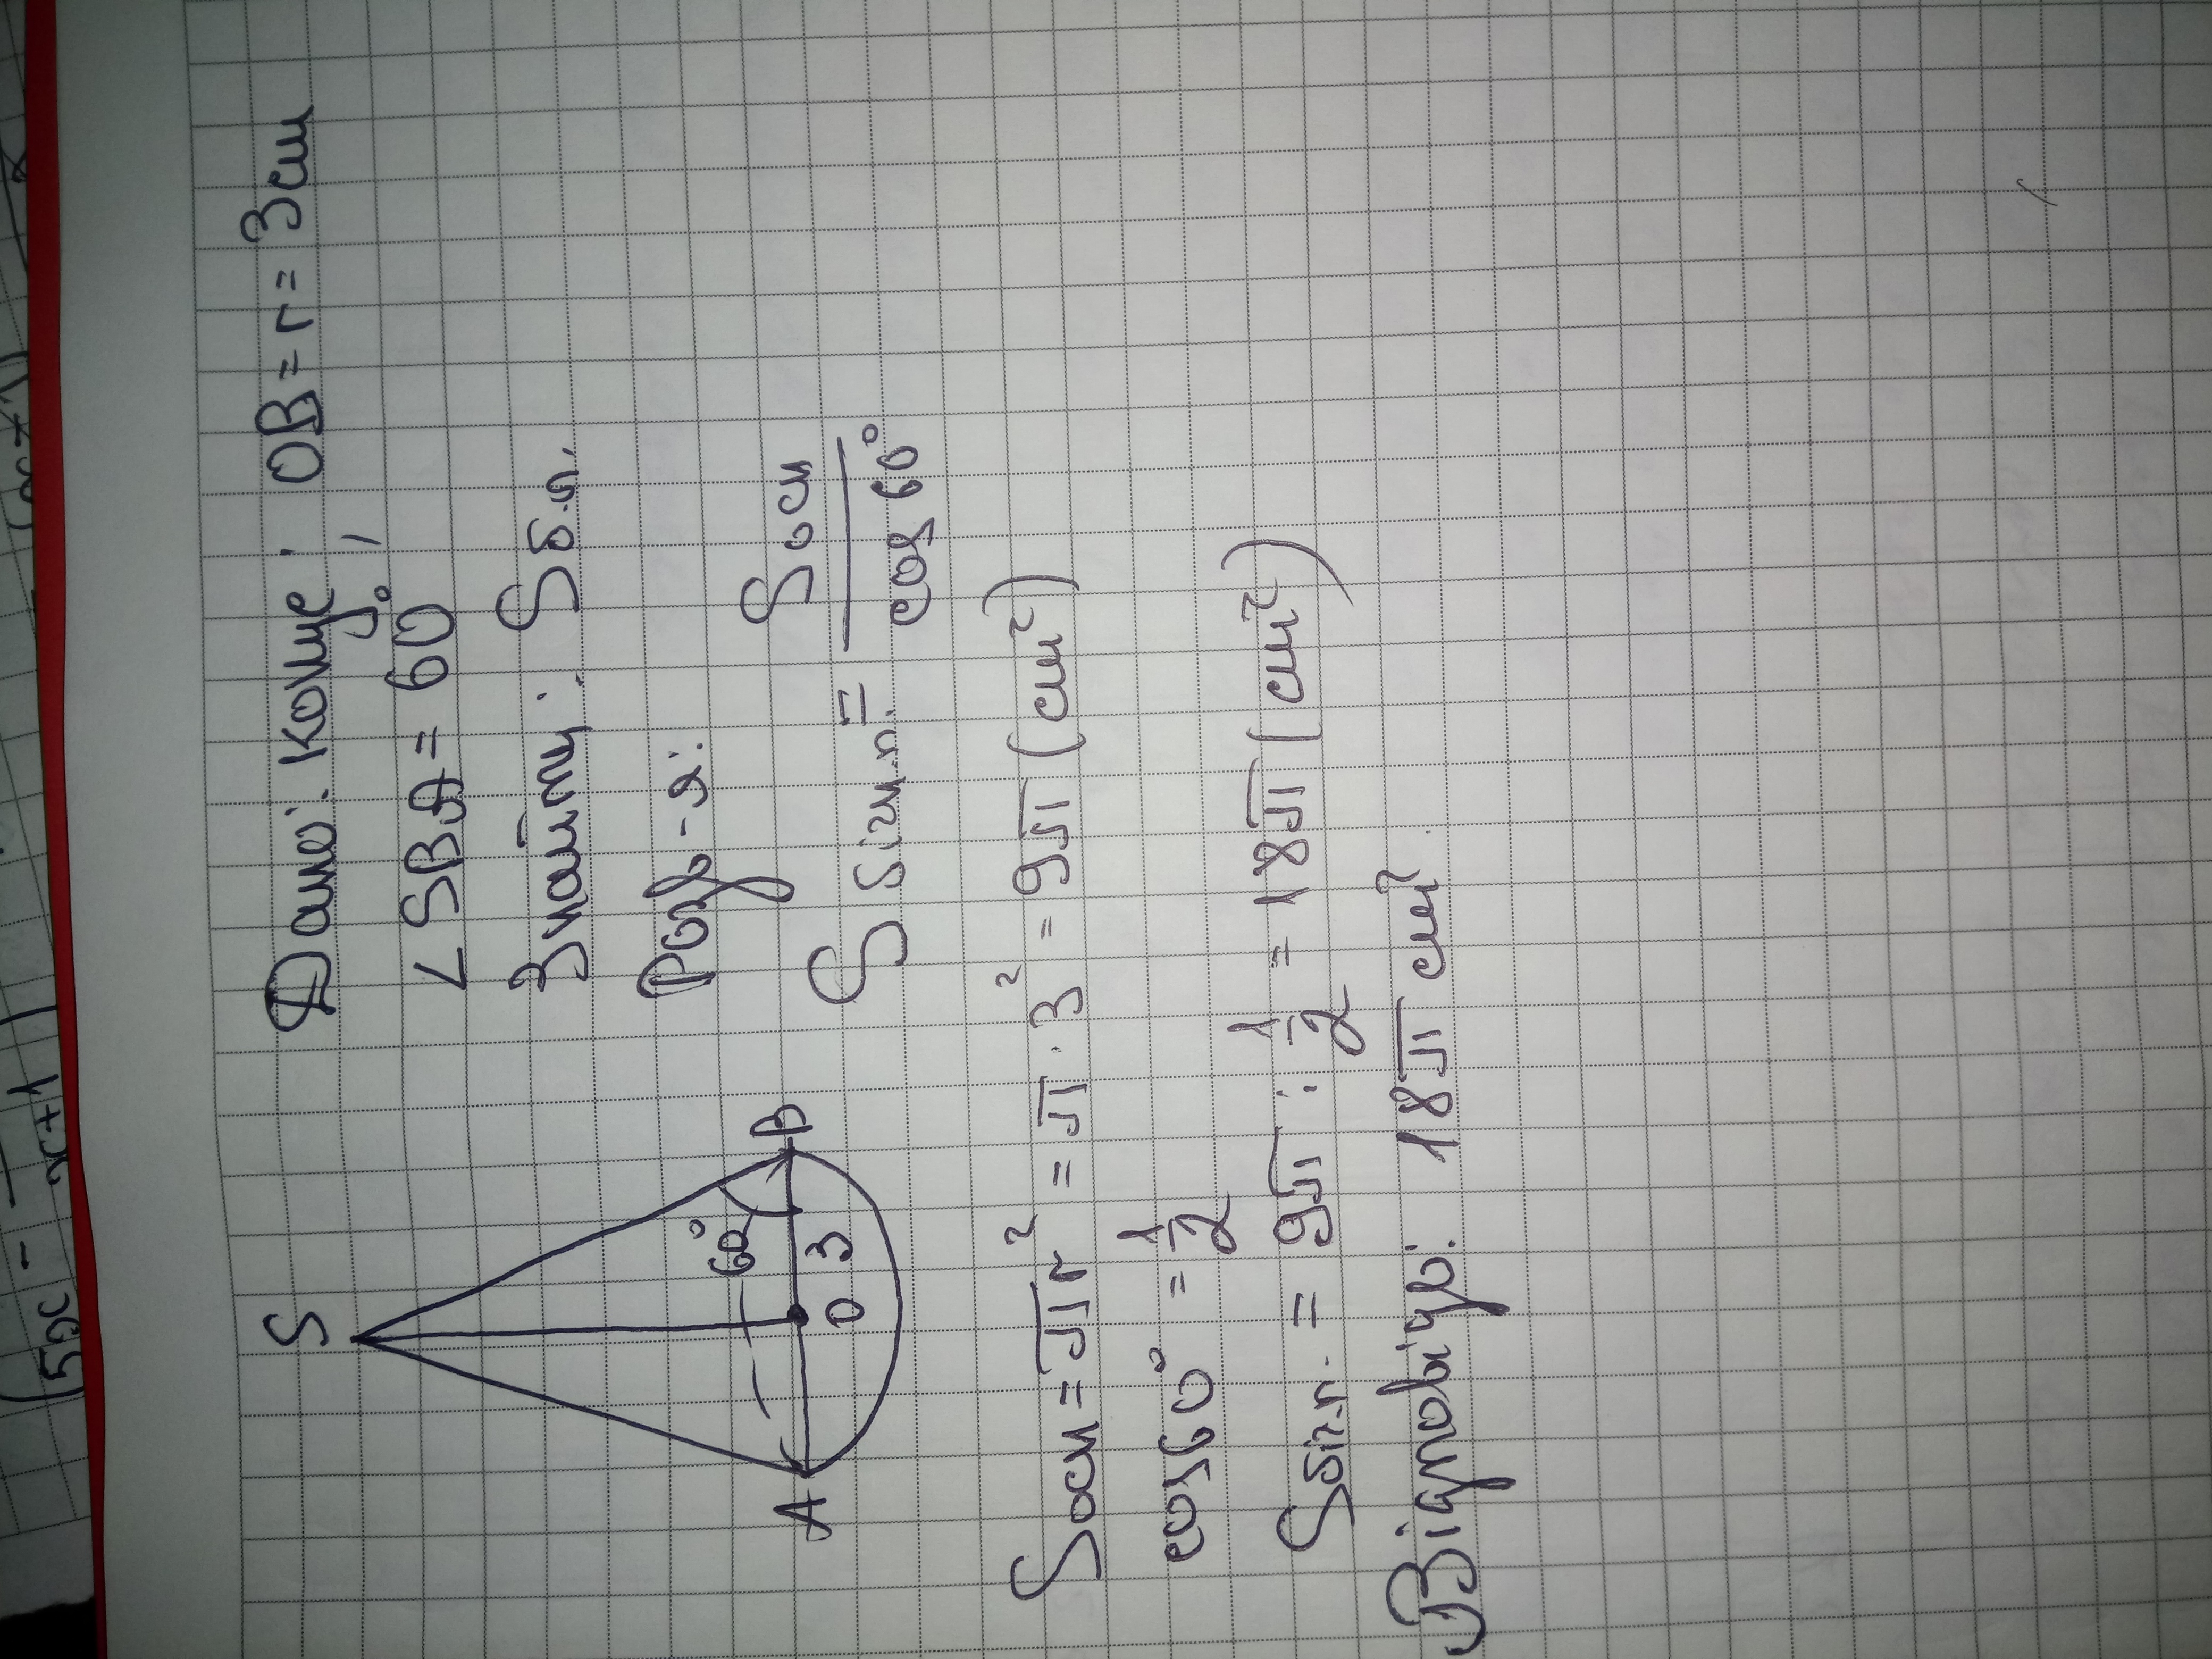 Дано: конус; OB = r = 3 см
∠SBA = 60°;
Знайти: S б.п.
Розв-я:
S бічн.п. = S осн / cos 60°
S
60°
A
O
3
B
S осн = πr² = π · 3² = 9π (см²)
cos 60° = 1/2
S біч.п. = 9π : 1/2 = 18π (см²)
Відповідь: 18π см².
(5x - 
x+1